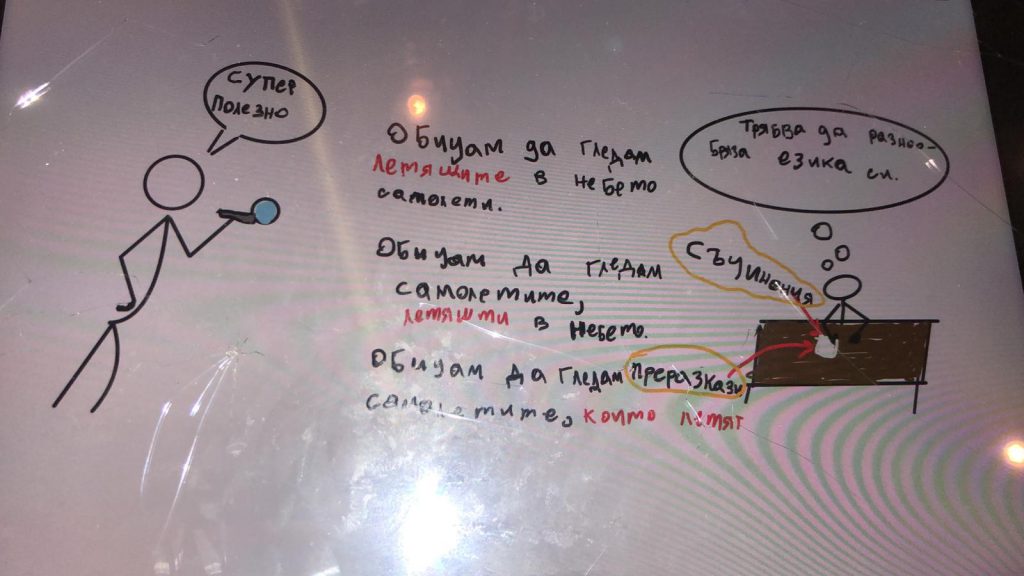 Супер
Полезно
Обичам да гледам
летящите в небето
самолети.
Обичам да гледам
самолетите,
летяшти в небето.
Обичам да гледам
самолетите, които летят
Трябва да разноо-
бразя езика си.
Съчинения
преразкази